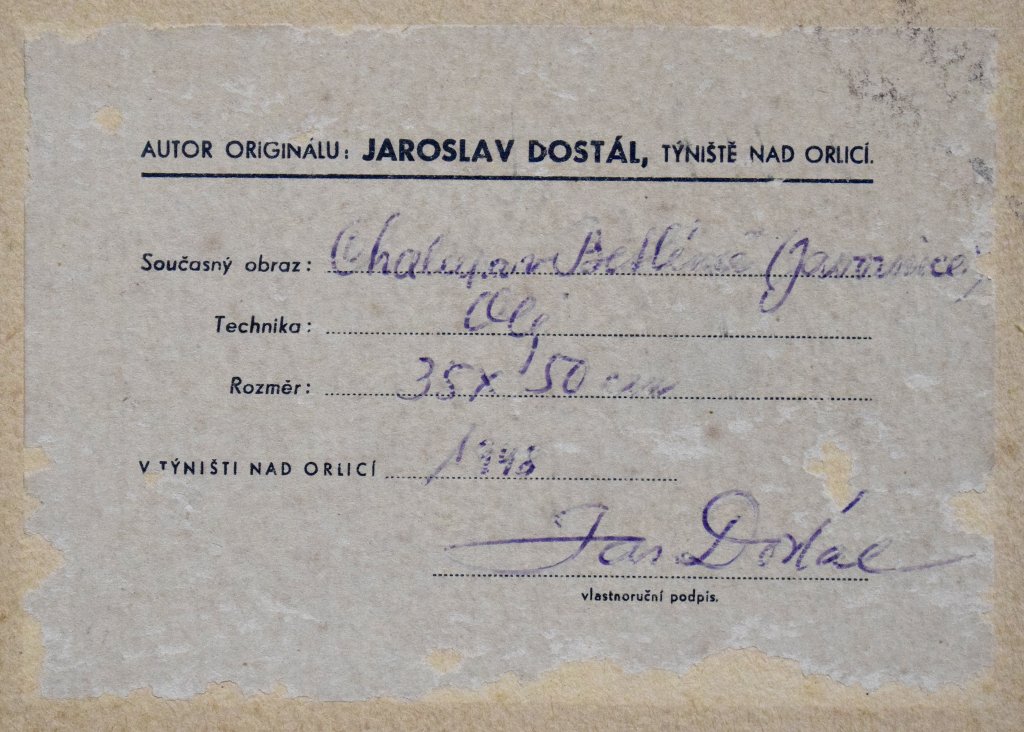 AUTOR ORIGINÁLU: JAROSLAV DOSTÁL, TÝNIŠTĚ NAD ORLICÍ.
Současný obraz: Chalupa v Betlémě (Javornice)
Technika: Olej
Rozměr: 35x50 cm
V TÝNIŠTI NAD ORLICÍ 1948
Jar Dostál
vlastnoruční podpis.